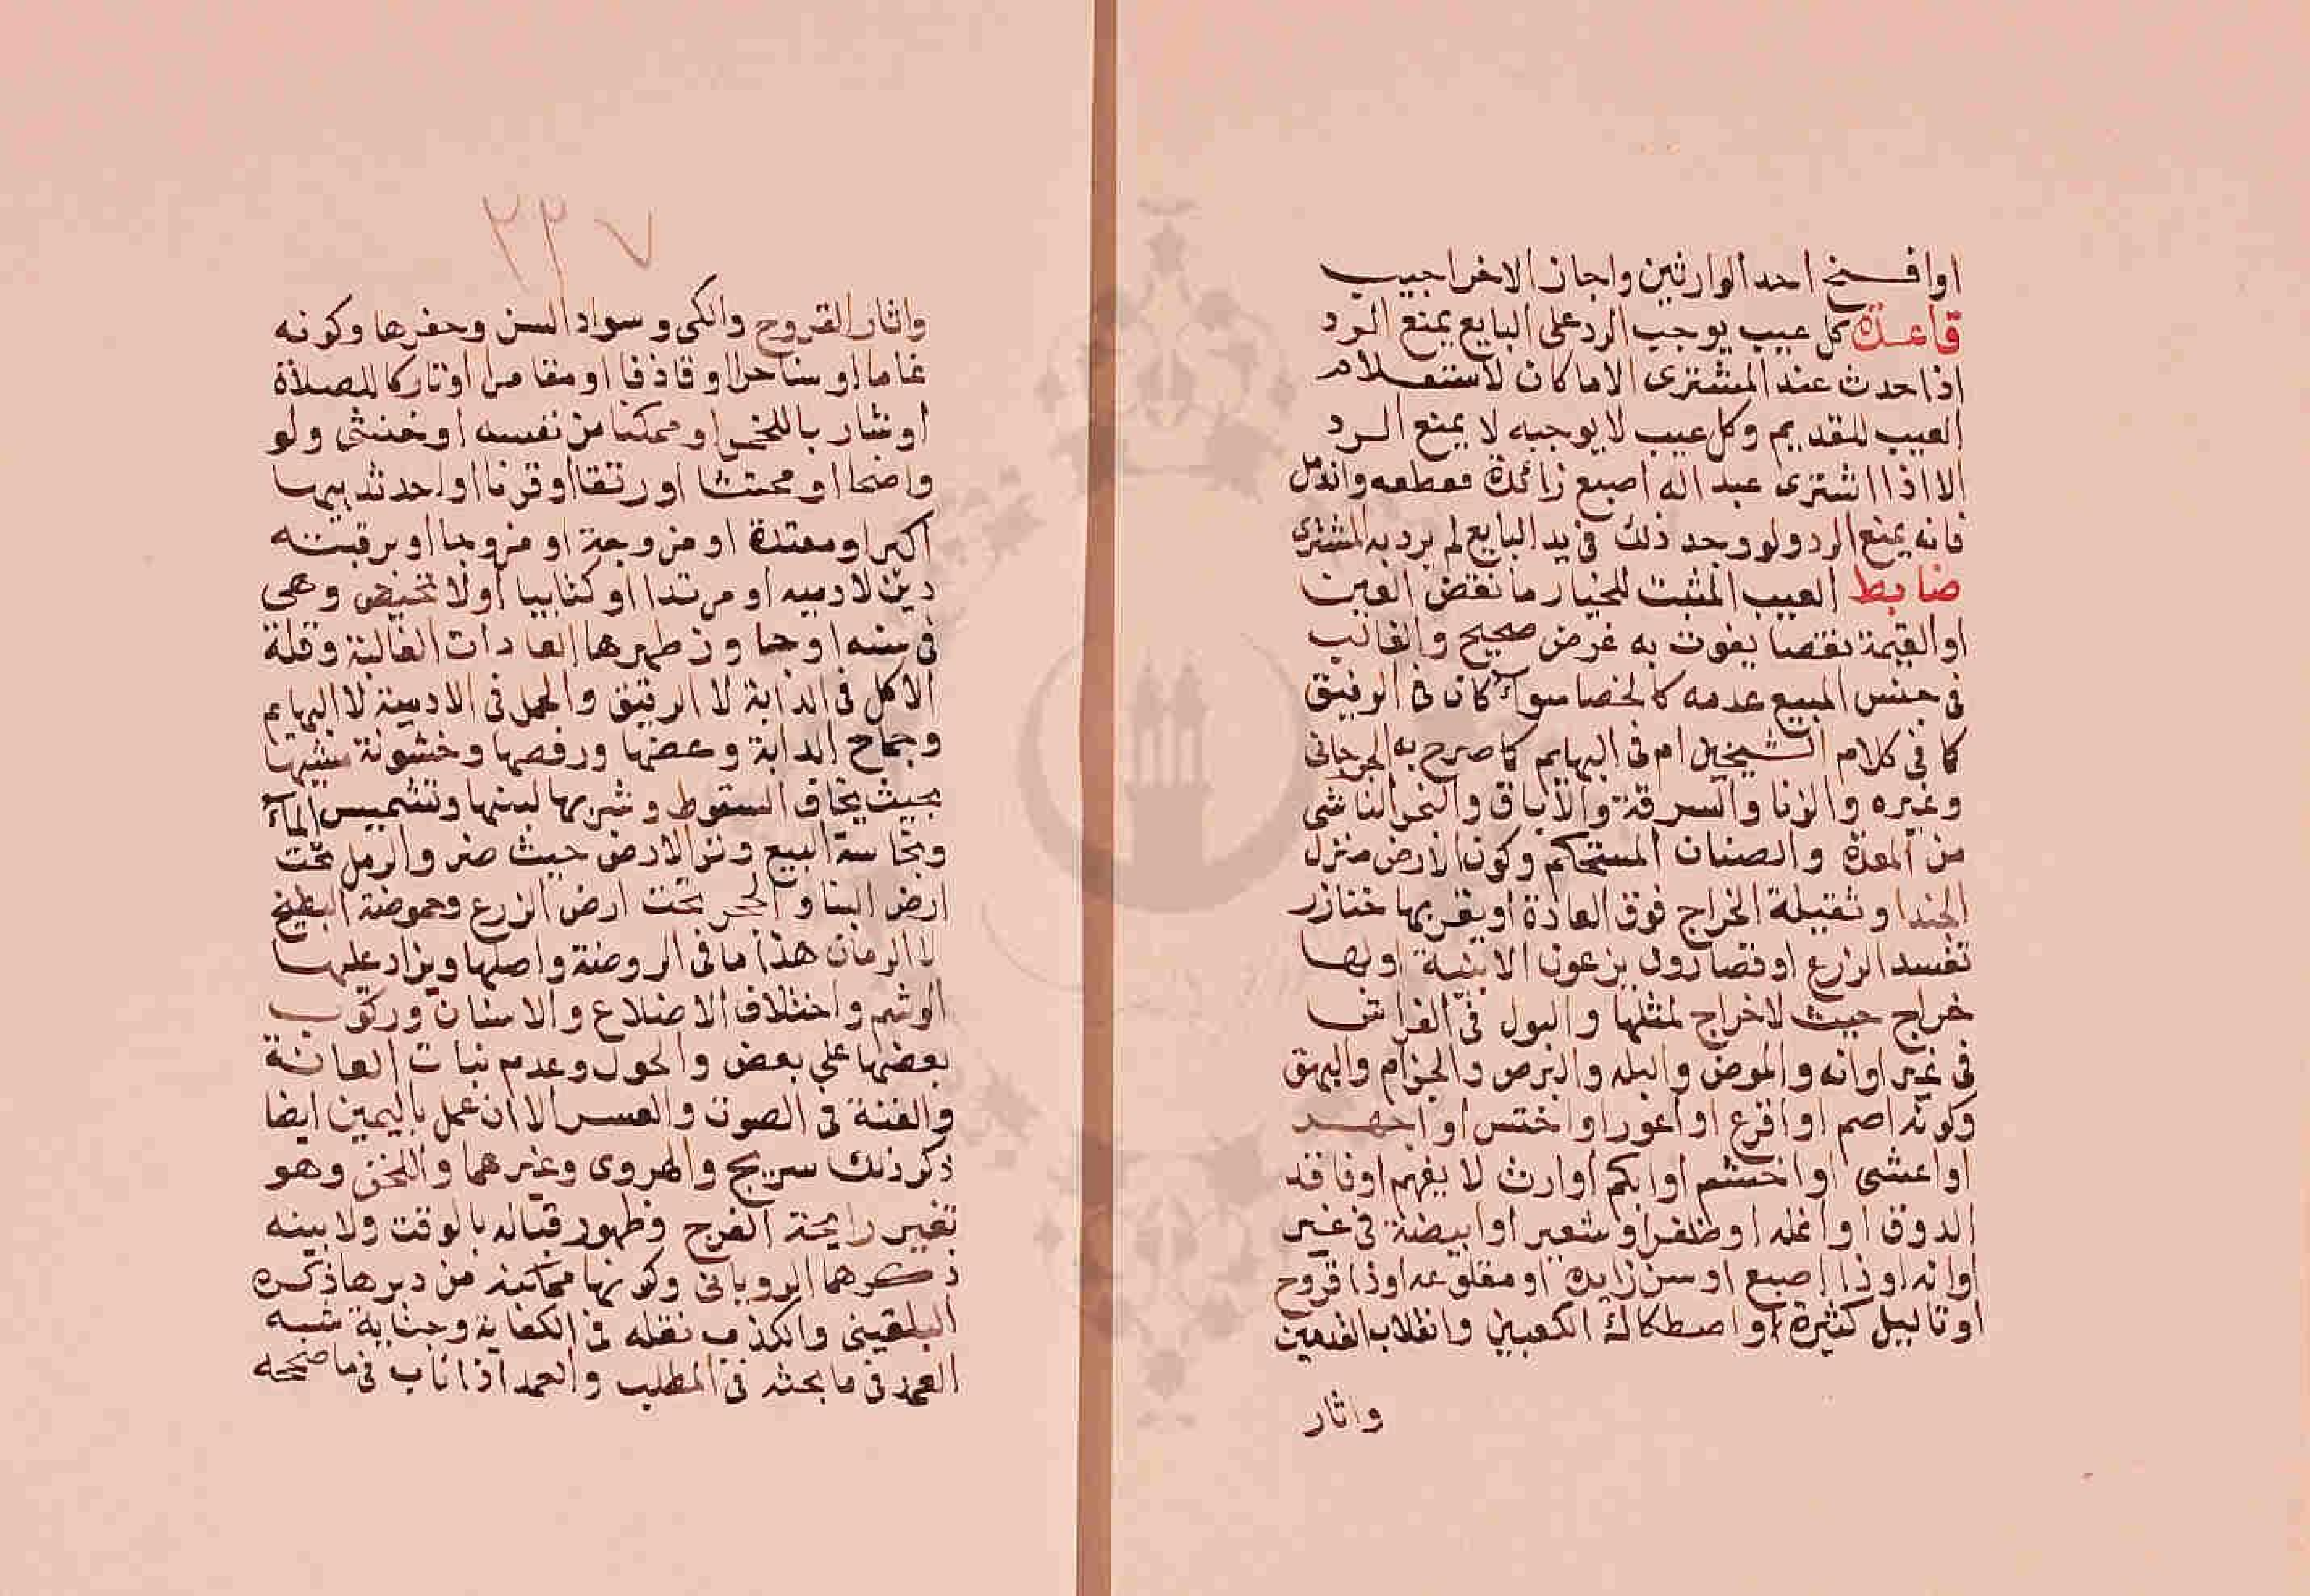 اوافسخ احد الوارثين واجاز الاخر اجيب
قاعدة كل عيب يوجب الرد على البايع يمنع الرد
اذا حدث عند المشترى الا ما كان لاستعلام
العيب القديم وكل عيب لا يوجبه لا يمنع الرد
الا اذا اشترى عبدا له اصبع زائدة فقطعه واندمل
فانه يمنع الرد ولو وجد ذلك فى يد البايع لم يرد به المشترى
ضابط العيب المثبت للخيار ما نقص العين
او القيمة نقصا يفوت به غرض صحيح والغالب
فى جنس المبيع عدمه كالخصا سوآء كان فى الرقيق
كما فى كلام الشيخين ام فى البهايم كما صرح به الجرجانى
وغيره والزنا والسرقة والاباق والبخر الناشى
من المعدة والصنان المستحكم وكون الارض منزل
الجند او ثقيلة الخراج فوق العادة او بقربها خنازر
تفسد الزرع او قصارون يزعون الابنية او لها
خراج حيث لاخراج لمثلها والبول فى الفراش
فى غير اوانه والمرض والبله والبرص والجزام والبهق
وكونه اصم او اقرع او اعور او اخفش او اجهد
او اعشى او اخشم او ابكم او ارث لا يفهم او فاقد
الذوق او انمله او ظفر او شعير او ابيضة فى غير
اوانه او ذا اصبع او سن زايدة او مقلوعه او ذا قروح
او تاليل كثيرة او اصطكاك الكعبين وانقلاب القدمين
واثار
٢٣٧
واثار القروح والكى وسواد السن وحفرها وكونه
نماما او ساحرا او قاذفا او مقامرا او تاركا للصلاة
او شاربا للخمر او ممكنا من نفسه او خنثى ولو
واضحا او مخنثا او رتقا او قرنا او احد ثدييها
اكبر او معتدة او مزوجة او مزوجا او برقبته
دين لا دميه او مرتدا او كتابيا او لا تحيض وهى
فى سنه او جاوز طهرها العادات الغالبة وقلة
الاكل فى الدابة لا الرقيق والحمل فى الادمية لا البهايم
وجماح الدابة وعضها ورفصها وخشونة مشيتها
بحيث يخاف السقوط وشربها لبنها وتشميس المآء
ونجاسة المبيع ونز الارض حيث ضر والرمل تحت
ارض البنا والحجر تحت ارض الزرع وحموضة البطيخ
لا الرمان هذا ما فى الروضة واصلها ويزاد عليها
الوشم واختلاف الاضلاع والاسنان وركوب
بعضها على بعض والحول وعدم نبات العانة
والغنة فى الصوت والعسر الا ان عمل باليمين ايضا
ذكر ذلك سريج والهروى وغيرهما واللخن وهو
تغير رايحة الفرج وظهور قباله بالوقت ولا بينه
ذكرهما الرويانى وكونها ممكنة من دبرها ذكره
البلقينى والكذب نقله فى الكفاية وجناية شبه
العمد فى ما بحثه فى المطلب والعمد اذا تاب فى ما صححه